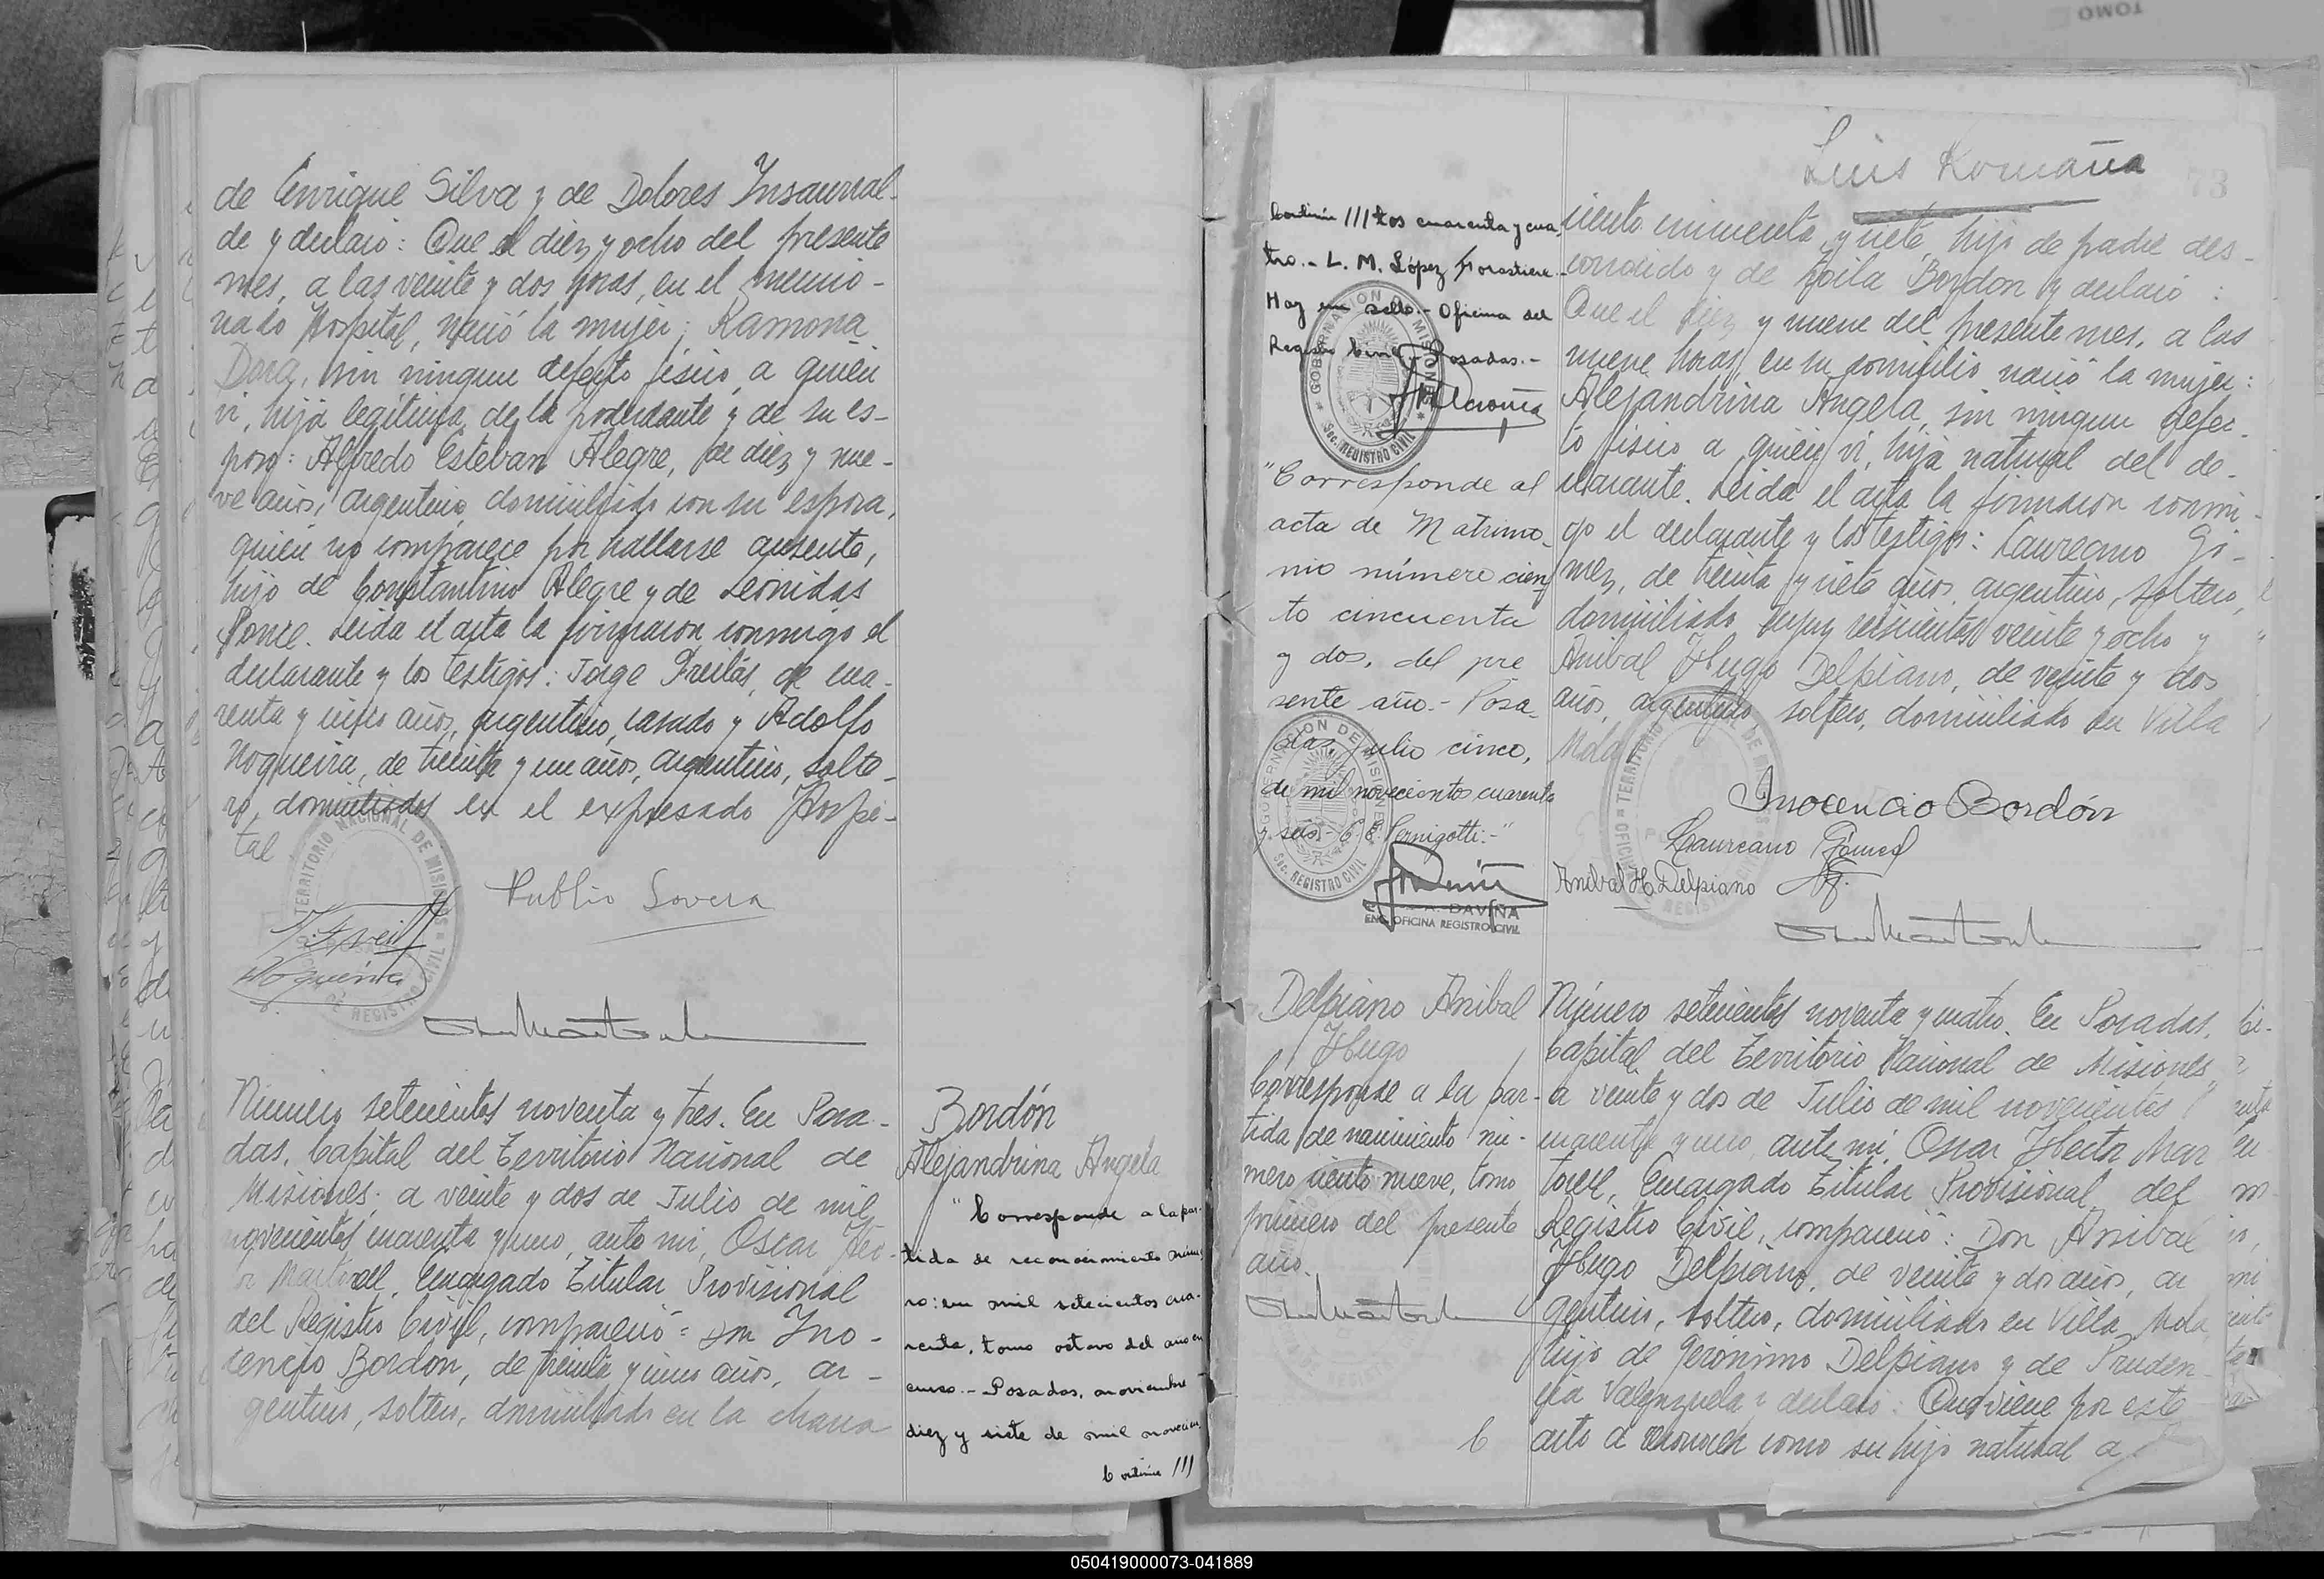 de Enrique Silva y de Dolores Insaurral-
de y declaró: Que el diez y ocho del presente
mes, a las veinte y dos horas, en el mencio-
nado Hospital, nació la mujer; Ramona
Dora, sin ningun defecto físico, a quién
vi, hija legítima de la poderdante y de su es-
poso: Alfredo Esteban Alegre, de diez y nue-
ve años, argentino, domiciliado con su esposa,
quién no comparece por hallarse ausente,
hijo de Constantino Alegre y de Leonidas
Ponce. Leida el acta la firmaron conmigo el
declarante y los testigos: Jorge Freitas, de cua-
renta y cinco años, argentino, casado y Adolfo
Nogueira, de treinta y un años, argentino, solte-
ro, domiciliados en el expresado Hospi-
tal
TERRITORIO NACIONAL DE MISIONES
REGISTRO CIVIL
Publio Lovera
Nogueira
Número setecientos noventa y tres. En Posa-
das, Capital del Territorio Nacional de
Misiones, a veinte y dos de Julio de mil
novecientos cuarenta y uno, ante mi, Oscar Héc-
tor Martorell, Encargado Titular Provisional
del Registro Civil, compareció: Don Ino-
cencio Bordon, de treinta y un años, ar-
gentino, soltero, domiciliado en la chacra
Bordón
Alejandrina Angela
"Corresponde a la par-
tida de reconocimiento núme-
ro: un mil setecientos cua-
renta, tomo octavo del año en
curso.- Posadas, noviembre
diez y siete de mil novecien
Continúa ///
TOMO
Luis Romaña
73
Continúa ///tos cuarenta y cua-
tro.- L. M. López Forastiere.-
Hay un sello.- Oficina del
Registro Civil - Posadas.-
GOBERNACION DE MISIONES
Sec. REGISTRO CIVIL
"Corresponde al
acta de Matrimo-
nio número cien-
to cincuenta
y dos, del pre
sente año.- Posa-
das, Julio cinco,
de mil novecientos cuarenta
y seis.- C. E. Pernigotti.-"
GOBERNACION DE MISIONES
Sec. REGISTRO CIVIL
DAVIÑA
ENC. OFICINA REGISTRO CIVIL
ciento cincuenta y siete, hijo de padre des-
conocido y de Zoila Bordon y declaró:
Que el diez y nueve del presente mes, a las
nueve horas, en su domicilio nació la mujer:
Alejandrina Angela, sin ningun defec-
to fisico a quién vi, hija natural del de-
clarante. Leida el acta la firmaron conmi-
go el declarante y los testigos: Laureano Gó-
mez, de treinta y siete años, argentino, soltero,
domiciliado Ayacucho veinte y ocho y
Anibal Hugo Delpiano, de veinte y dos
años, argentino, soltero, domiciliado en Villa
Mola
TERRITORIO NACIONAL DE MISIONES
Inocencio Bordón
Laureano Gómez
Anibal H. Delpiano
Delpiano Anibal
Hugo
Corresponde a la par-
tida de nacimiento nú-
mero ciento nueve, tomo
primero del presente
año.
Número setecientos noventa y cuatro. En Posadas,
Capital del Territorio Nacional de Misiones
a veinte y dos de Julio de mil novecientos
cuarenta y uno, ante mi, Oscar Hector Mar
torell, Encargado Titular Provisional del
Registro Civil, compareció: Don Anibal
Hugo Delpiano, de veinte y dos años, ar
gentino, soltero, domiciliado en Villa Mola,
hijo de Gerónimo Delpiano y de Pruden-
cia Valenzuela y declaró: Que viene por este
acto a reconocer como su hijo natural a
050419000073-041889